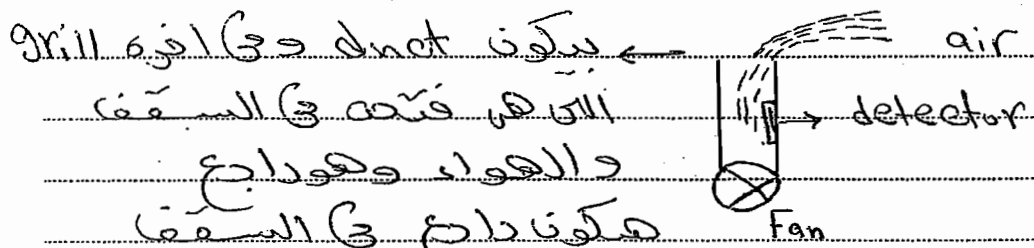 air بيكون duct وفى اخره grill
detector اللى هى فتحه فى السقف
والهواء وهو راجع
Fan هيكون راجع فى السقف